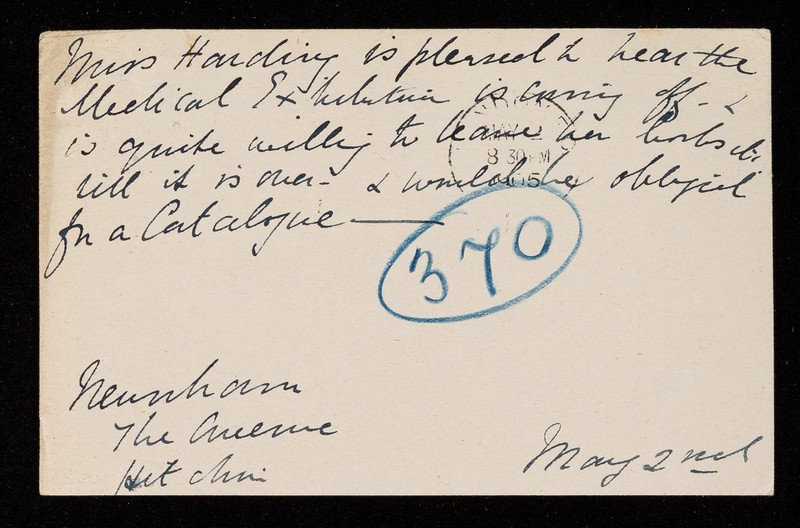 Miss Harding is pleased to hear the
Medical Exhibition is coming off - &
is quite willing to leave her books &c
till it is over - & would be obliged
for a Catalogue
MAY 2
8 30 PM
05
370
Newnham
The Avenue
Hitchin
May 2nd